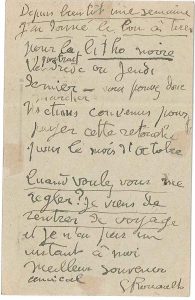 Depuis bientôt une semaine
j'ai donné le bon à tirer
pour la litho noire
Vendredi ou Jeudi
dernier — vous pouvez donc
marcher
convenus pour
cette
pour le mois d'Octobre
Quand voulez vous me
regler? Je viens de
rentrer de voyage
et je n'ai pas un
instant à moi
meilleur souvenir
amical